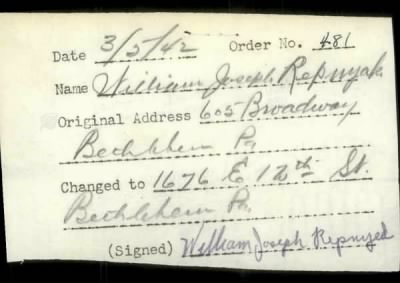 Date 3/5/42 Order No. 481
Name William Joseph Repnyak
Original Address 605 Broadway
Bethlehem Pa.
Changed to 1676 E 12th St.
Bethlehem Pa.
(Signed) William Joseph Repnyak